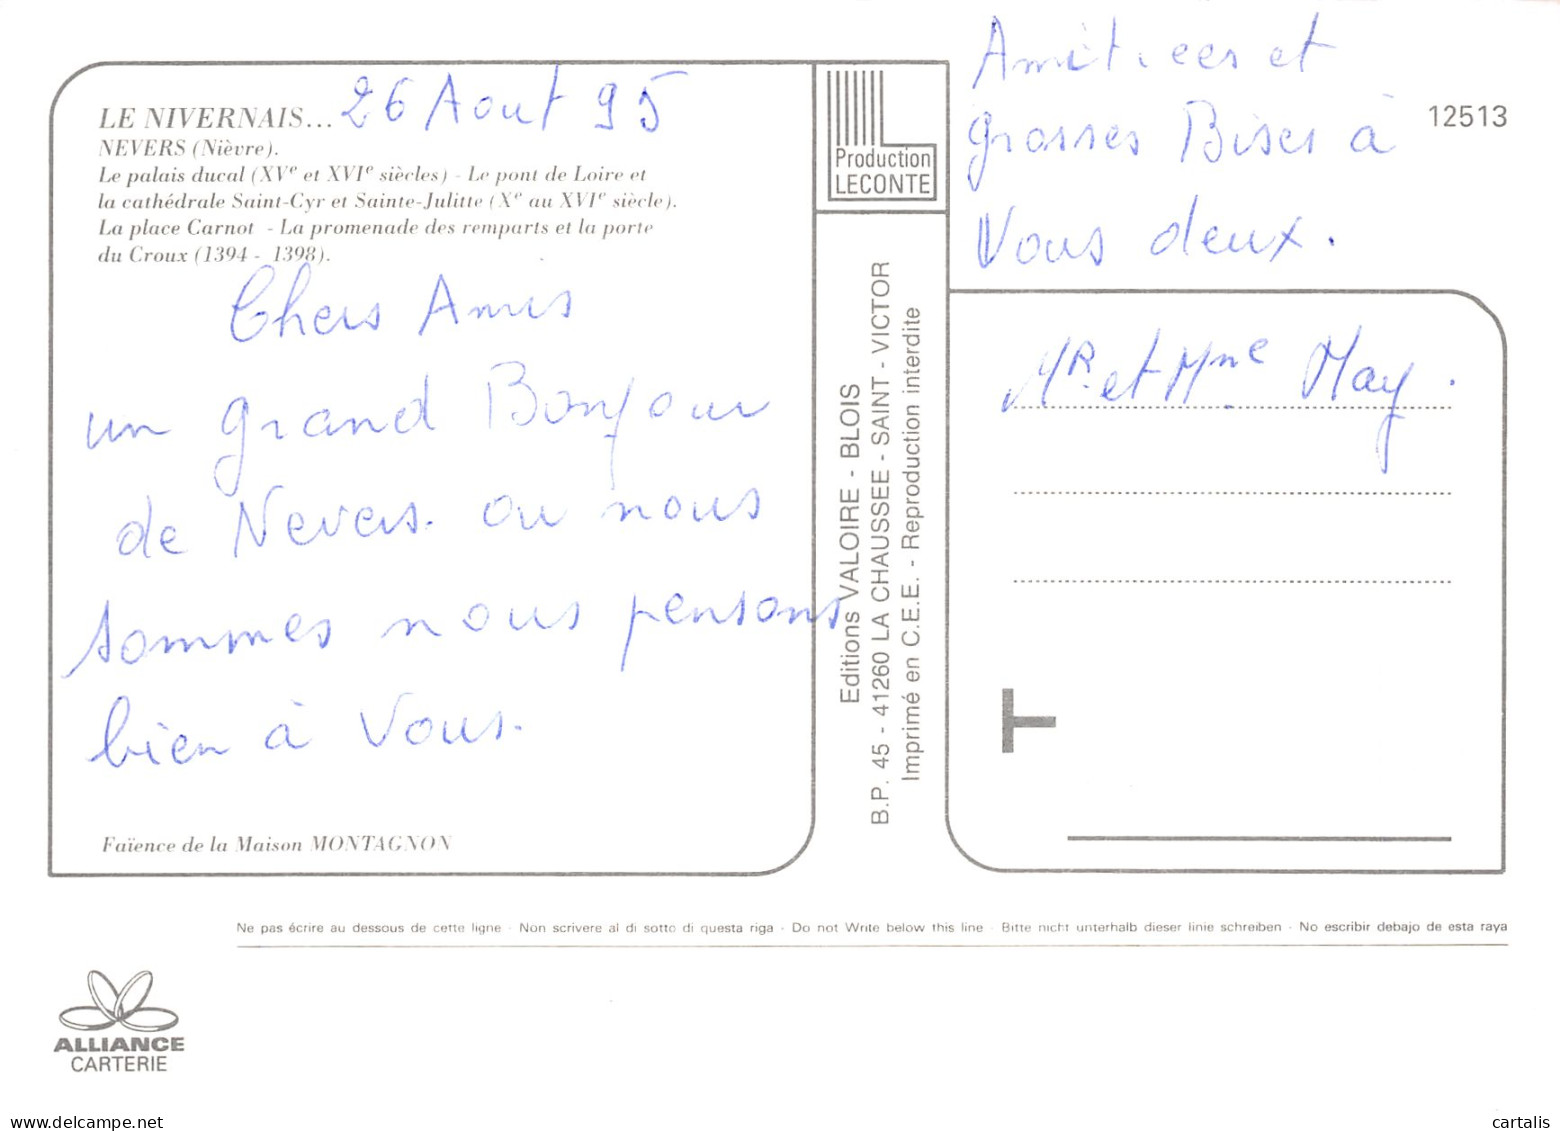 LE NIVERNAIS... 26 Aout 95
NEVERS (Nièvre).
Le palais ducal (XVe et XVIe siècles) - Le pont de Loire et
la cathédrale Saint-Cyr et Sainte-Julitte (Xe au XVIe siècle).
La place Carnot - La promenade des remparts et la porte
du Croux (1394 - 1398).
Chers Amis
un grand Bonjour
de Nevers. ou nous
sommes nous pensons
bien à Vous.
Faïence de la Maison MONTAGNON
Production
LECONTE
Editions VALOIRE - BLOIS
B.P. 45 - 41260 LA CHAUSSEE - SAINT - VICTOR
Imprimé en C.E.E. - Reproduction interdite
Amitiees et
grosses Bises à
Vous deux.
12513
MR. et Mme May.
T
Ne pas écrire au dessous de cette ligne - Non scrivere al di sotto di questa riga - Do not Write below this line - Bitte nicht unterhalb dieser linie schreiben - No escribir debajo de esta raya
ALLIANCE
CARTERIE
www.delcampe.net
cartalis